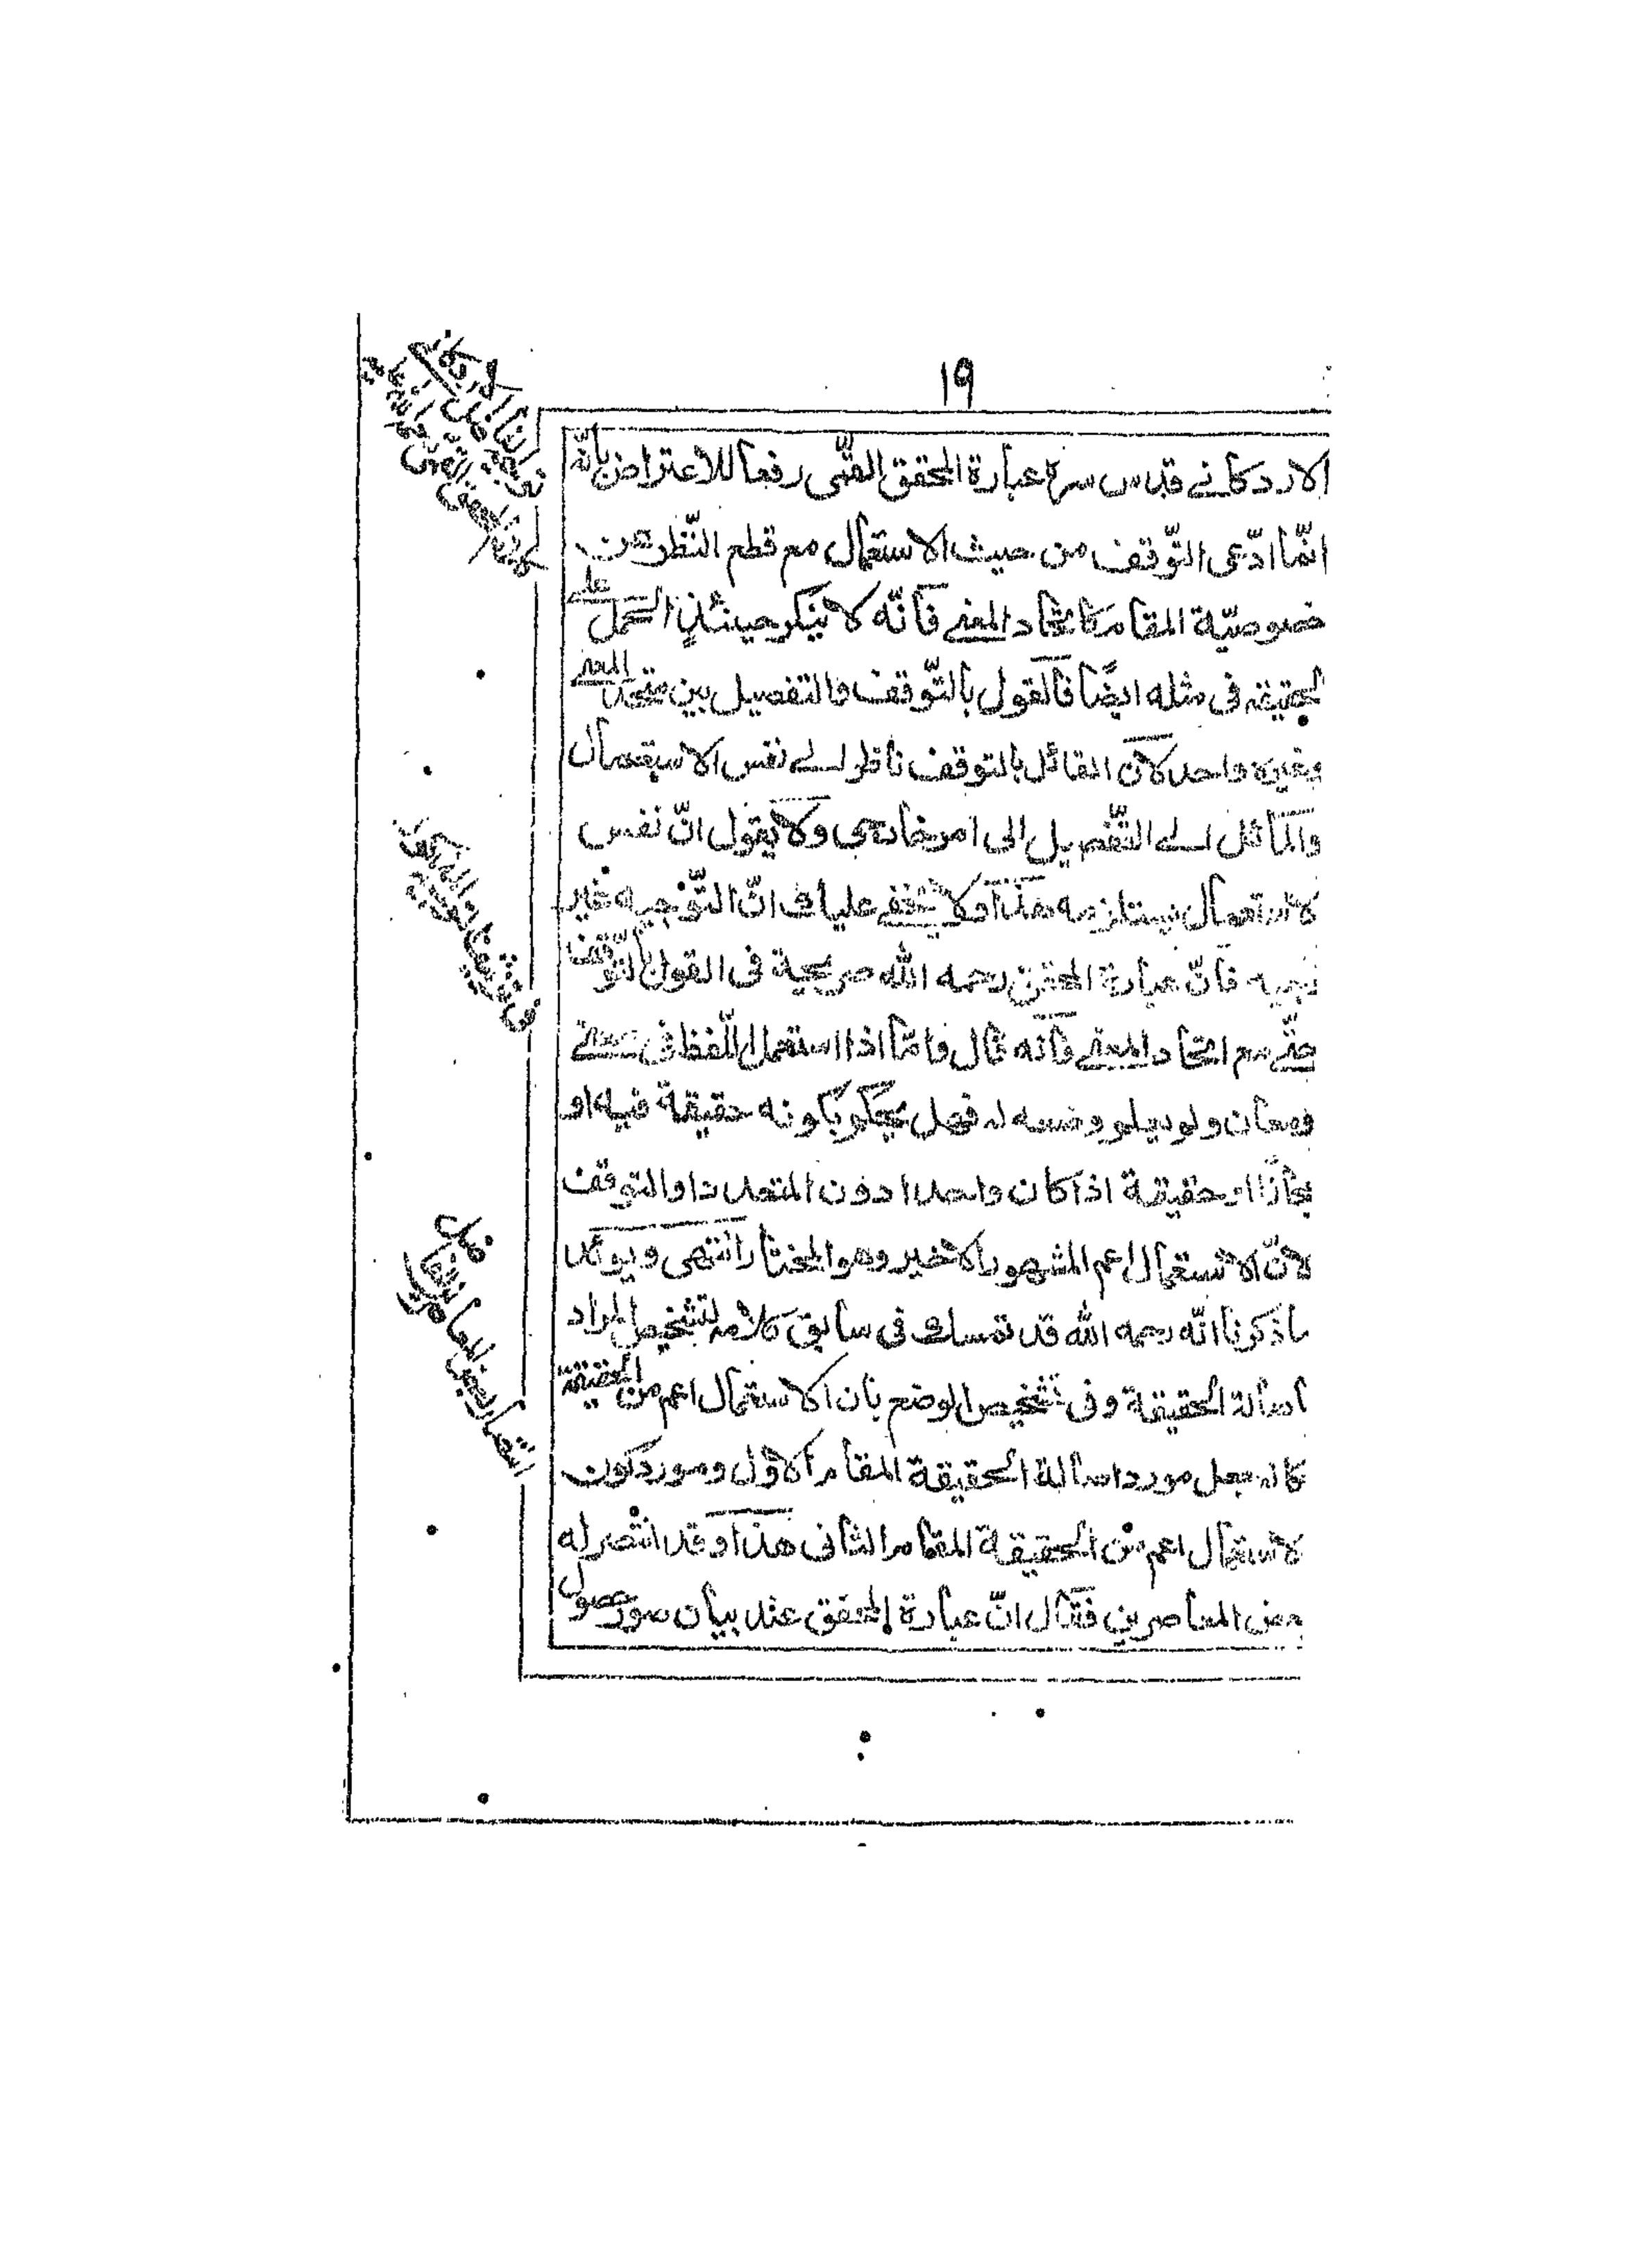 ١٩
الاردكاني قدس سره عبارة المحقق القمّى رفعا للاعتراض بانّه
انّما ادّعى التّوقف من حيث الاستعمال مع قطع النّظر عن
خصوصيّة المقام كاتحاد المعنى فانّه لا ينكر حينئذٍ الحمل على
الحقيقه فى مثله ايضًا فالقول بالتّوقف والتفصيل بين متحد المعنى
وغيره واحد لان القائل بالتوقف ناظر الى نفس الاستعمال
والمائل الى التّفصيل الى امر خارجى ولا يقول انّ نفس
الاستعمال يستلزمه هذا ولا يخفى عليك انّ التّوجيه غير
وجيه فانّ عبارة المحقق رحمه الله صريحة فى القول بالتوقف
حتّى مع اتحاد المعنى فانّه قال فامّا اذا استعمل اللّفظ فى معنى
ومعان ولم يعلم وضعه له فهل يحكم بكونه حقيقة فيه او
مجازًا او حقيقة اذا كان واحدا دون المتعدد او التوقف
لانّ الاستعمال اعم المشهور الاخير وهو المختار انتهى ويؤيد
ما ذكرنا انّه رحمه الله قد تمسك فى سابق كلامه لتشخيص المراد
باصالة الحقيقة وفى تشخيص الوضع بان الاستعمال اعم من الحقيقة
فانه جعل مورد اصالة الحقيقة المقام الاوّل ومورد كون
الاستعمال اعم من الحقيقة المقام الثانى هذا وقد انتصر له
بعض المعاصرين فقال انّ عبارة المحقق عند بيان صور حصول
توجيه الفاضل الاردكاني
لكلام المحقق القمى رحمة الله عليه
انتصار بعض المعاصرين